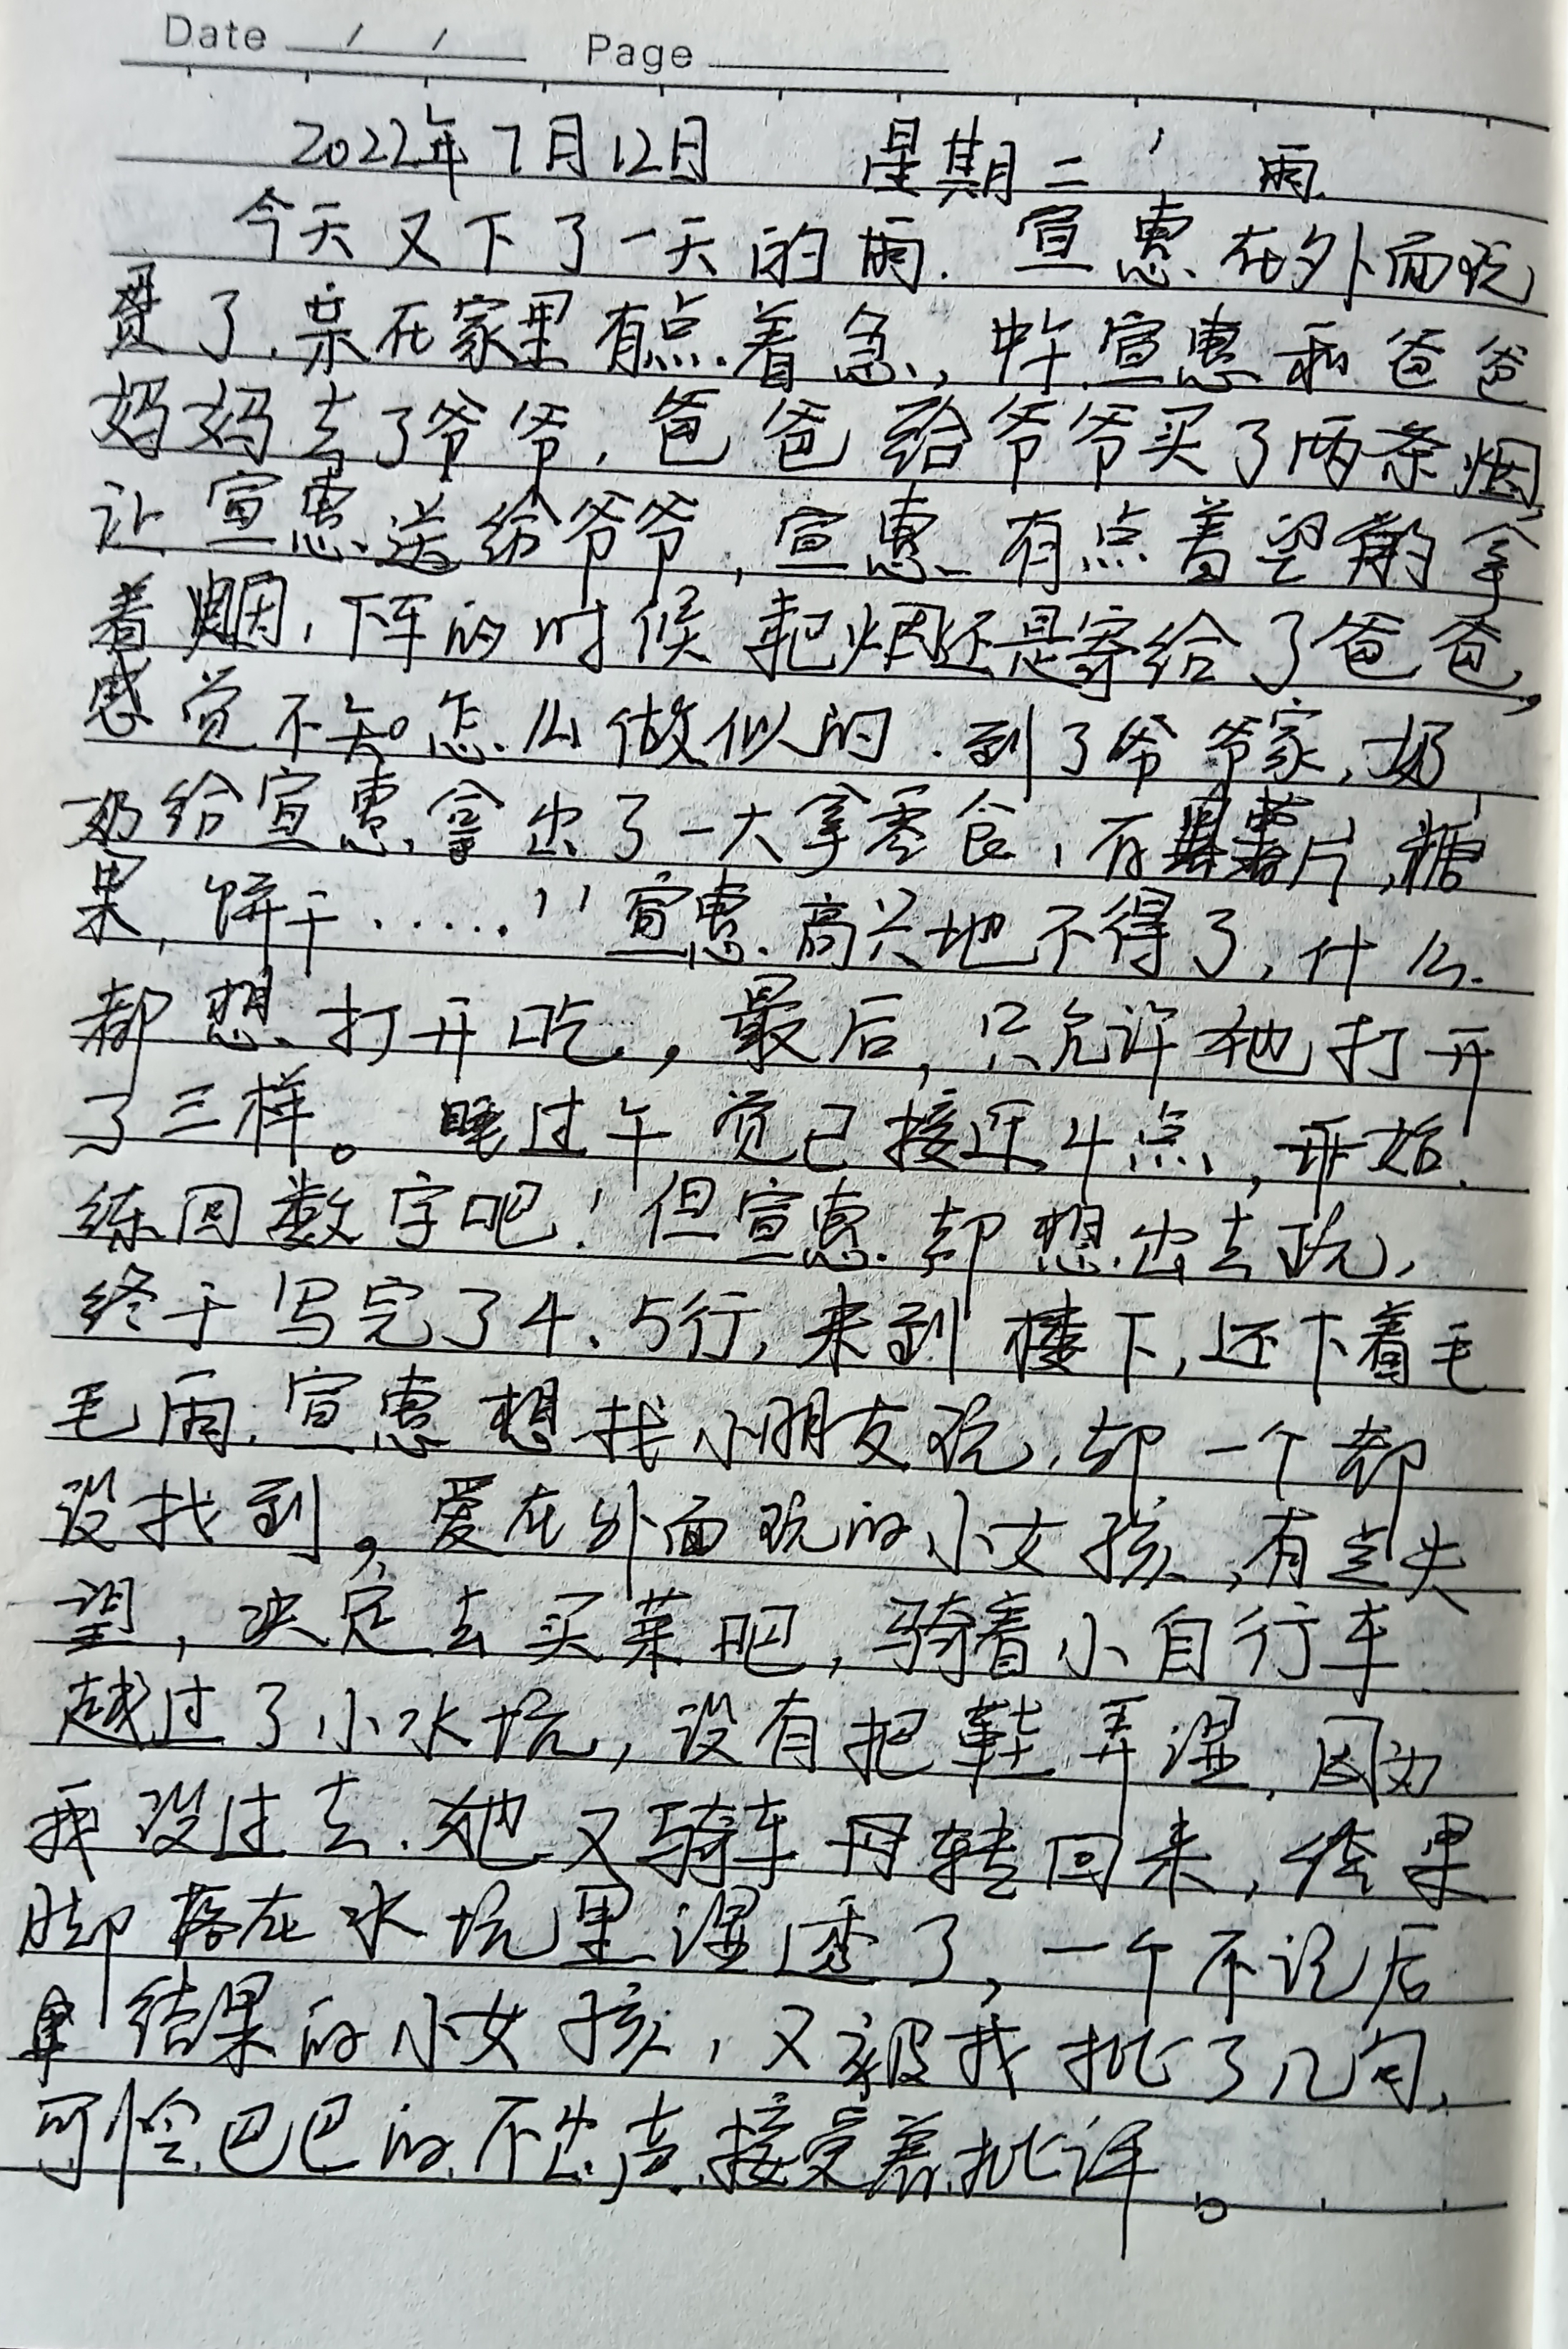 Date / / Page
2022年7月12日 星期二 雨
今天又下了一天的雨.宣惠在外面玩
贯了,呆在家里有点着急,中午宣惠和爸爸
妈妈去了爷爷,爸爸给爷爷买了两条烟,
让宣惠送给爷爷,宣惠有点着望的拿
着烟,下车的时候把烟还是寄给了爸爸,
感觉不知怎么做似的.到了爷爷家,奶
奶给宣惠拿出了一大拿零食,有薯片,糖
果,饼干······宣惠高兴地不得了,什么
都想打开吃,最后,只允许她打开
了三样。睡过午觉已接近4点,开始
练回数字吧!但宣惠却想出去玩,
终于写完了4、5行,来到楼下,还下着毛
毛雨,宣惠想找小朋友玩,却一个都
没找到,爱在外面玩的小女孩,有点失
望,决定去买菜吧,骑着小自行车
越过了小水坑,没有把鞋弄湿,因为
我没过去.她又骑车再转回来,结果
脚落在水坑里湿透了,一个不记后
果结果的小女孩,又被我批了几句,
可怜巴巴的不出声.接受着批评。